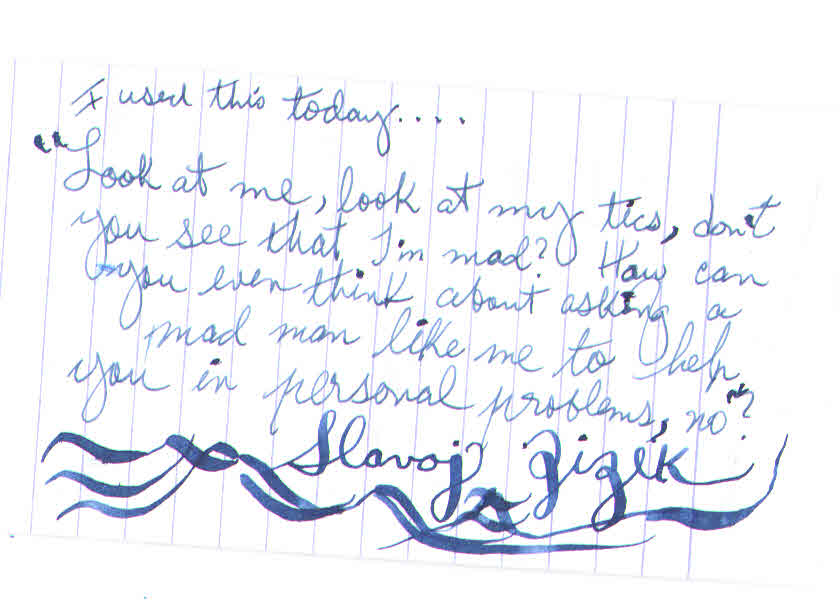 I used this today....
"Look at me, look at my tics, don't
you see that I'm mad? How can
you even think about asking a
mad man like me to help
you in personal problems, no"?
Slavoj Zizek